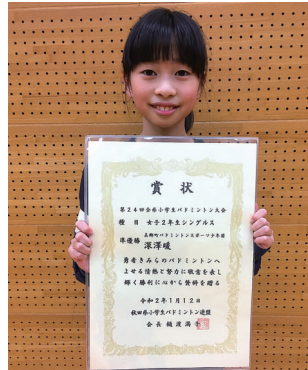 賞状
第24回全県小学生バドミントン大会
種目 女子2年生シングルス
美郷町バドミントンスポーツ少年団
準優勝 深澤暖
勇者きみらのバドミントンへ
よせる情熱と努力に敬意を表し
輝く勝利に心から賛辞を贈る
令和2年1月12日
秋田県小学生バドミントン連盟
会長 樋渡満